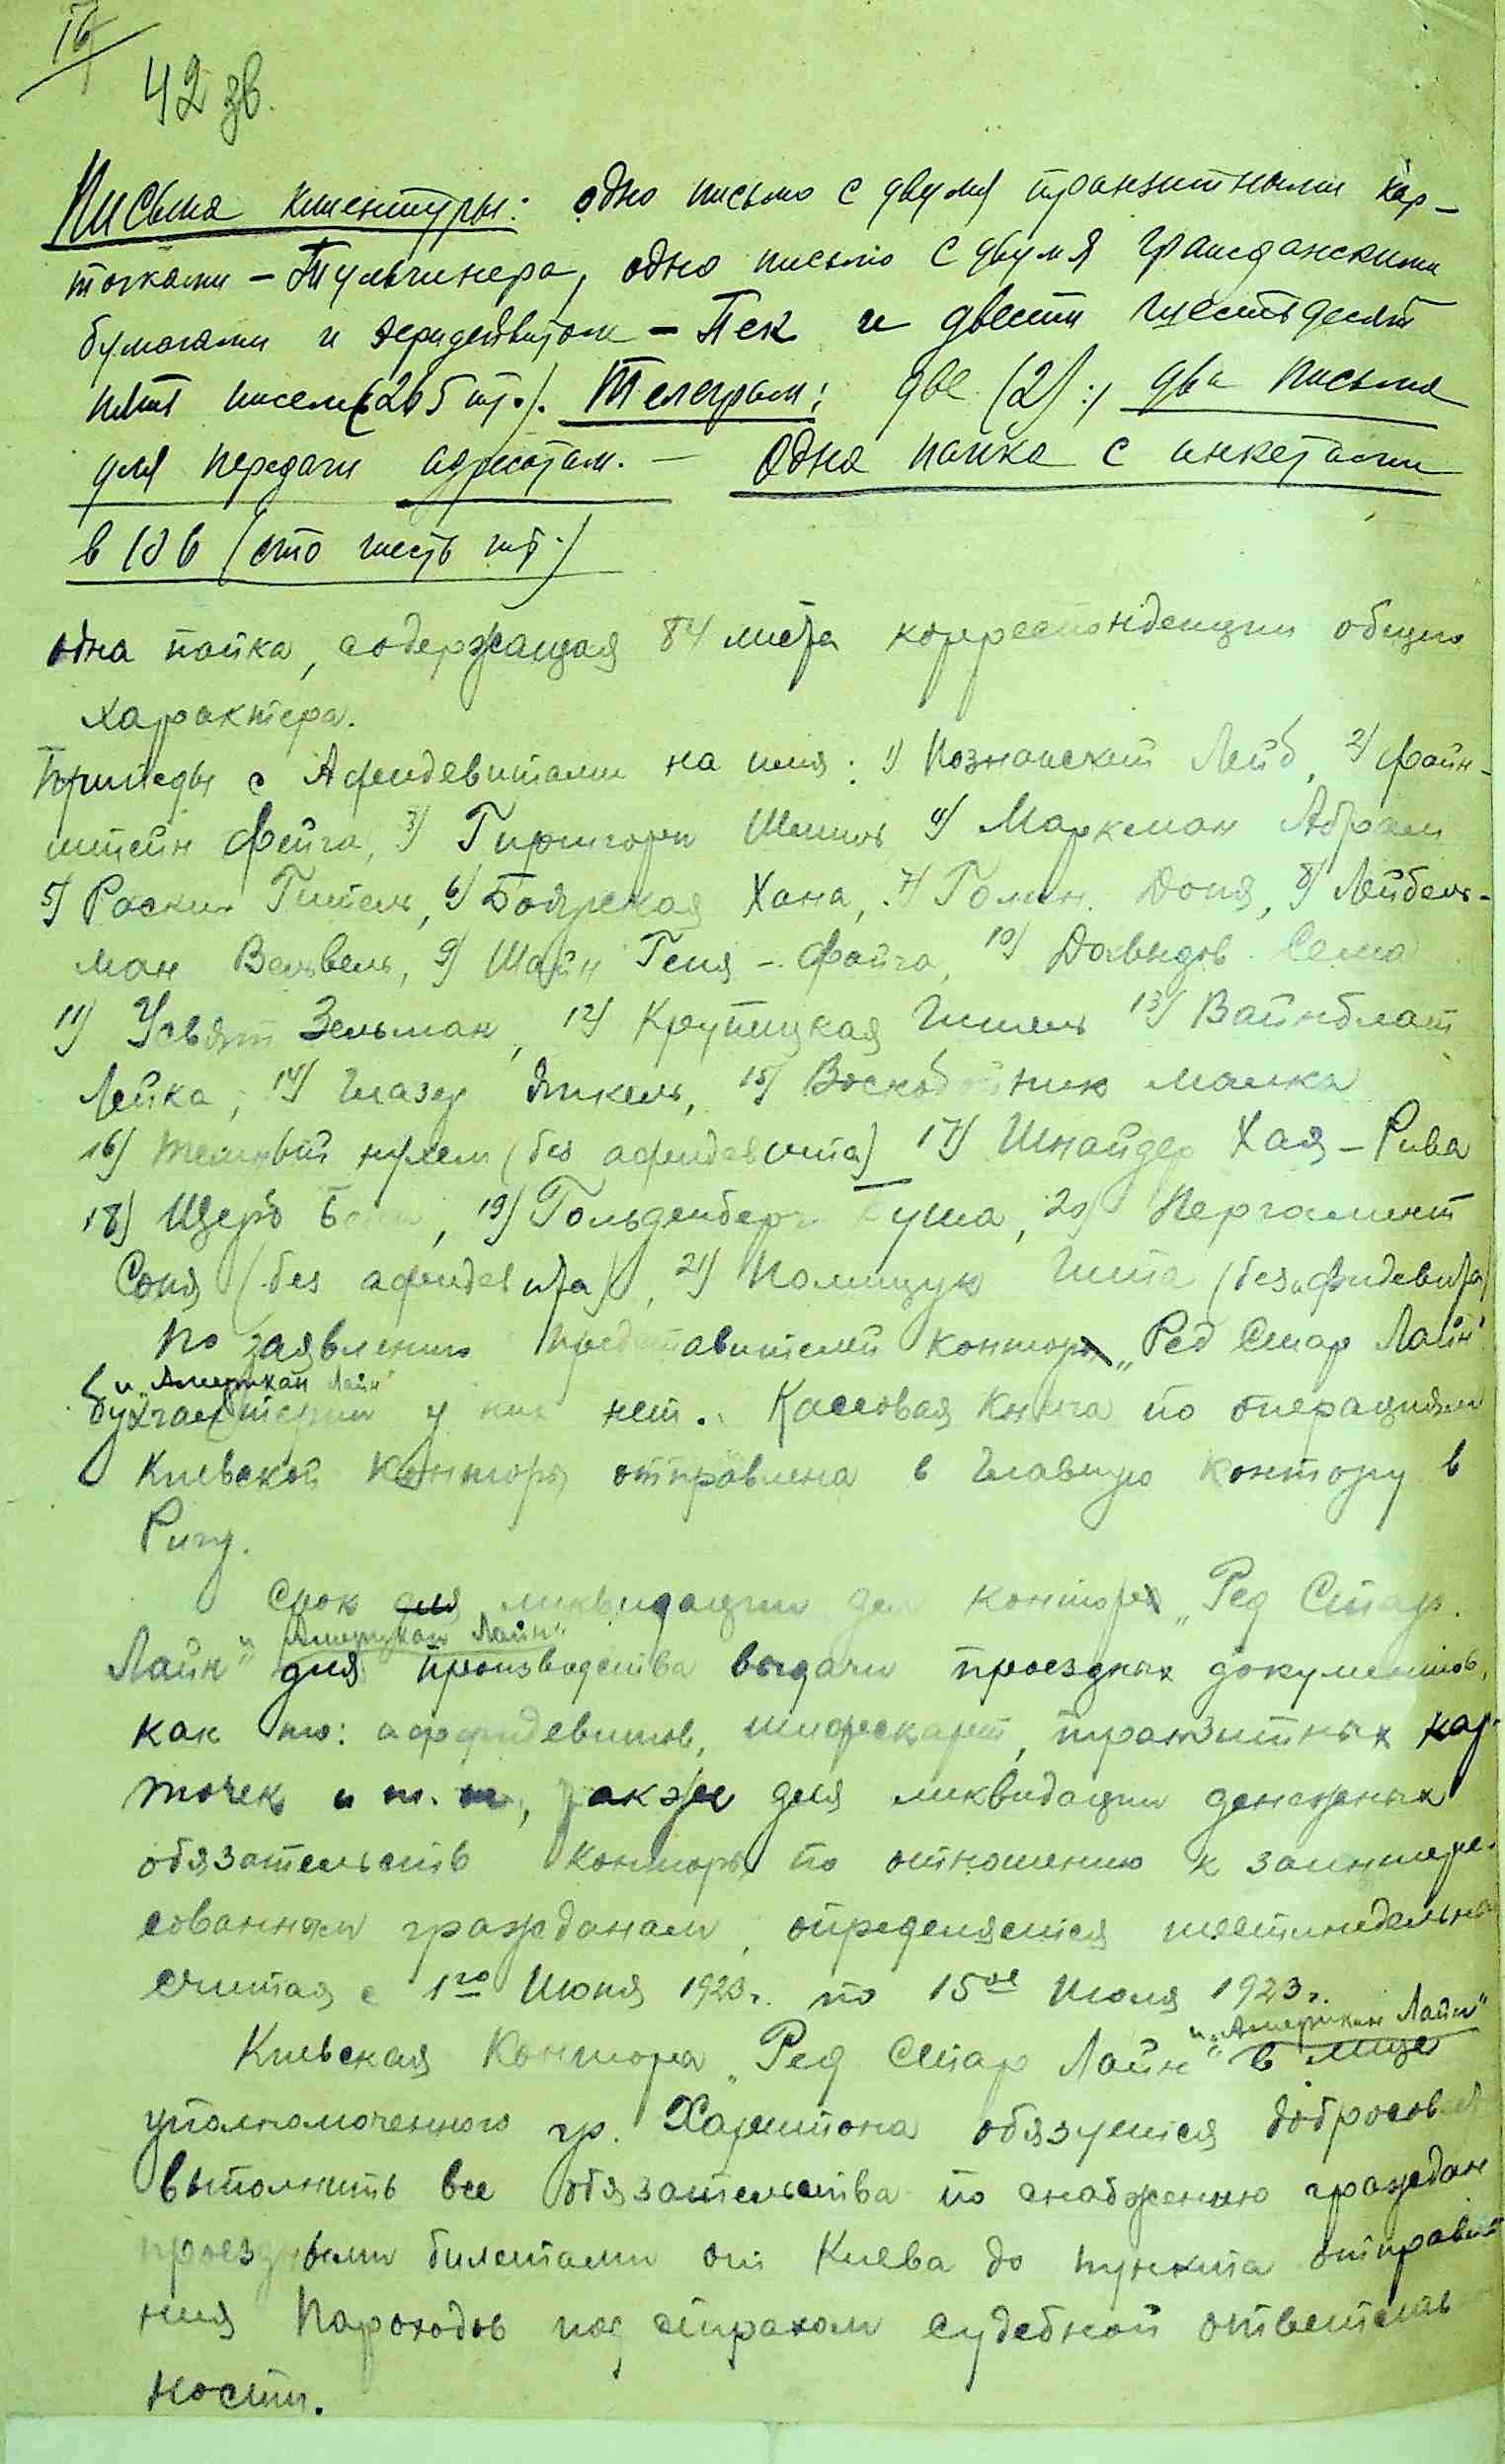 42 зв.
Письма клиентуры: одно письмо с двумя транзитными кар-
точками – Тульчинера, одно письмо с двумя гражданскими
бумагами и – Пек и двести шестьдесят
пять писем (265 шт.). Телеграм: две (2); два письма
для передачи адресатам. — Одна папка с анкетами
в 106 (сто шесть шт.)
одна папка, содержащая 84 листа корреспонденции общего
характера.
с Афидевитами на имя: 1) Познанский Лейб, 2) Файн-
штейн Фейга, 3) 4) Маркман Абрам
5) Раскин Гитель, 6) Боярская Хана, 7) Доня, 8) Лейбель-
ман Вельвель, 9) Геня – Файга, 10) Давыдов Сема
11) Усвят Зельман, 12) Крупицкая 13) Вайнблат
Лейка, 14) Глазер Янкель, 15) Воскобойник Малка
16) (без афидевита) 17) Шнайдер Хая – Рива
18) Щерб 19) Гольденберг 20) Пергамент
Соня (без афидевита), 21) Полищук Гита (без афидевита)
По заявлению представителей контор „Ред Стар Лайн"
и „Американ Лайн"
бухгалтерии у них нет. Кассовая книга по операциям
Киевской Конторы отправлена в Главную контору в
Ригу.
Срок для ликвидации дел контор „Ред Стар
Американ Лайн"
Лайн" и для производства выдачи проездных документов,
как то: аффидевитов, шифскарт, транзитных кар-
точек и т. п., также для ликвидации денежных
обязательств Конторы по отношению к заинтере-
сованным гражданам, определяется шестинедельный
считая с 1го Июня 1923 г. по 15ое Июля 1923 г.
и „Американ Лайн"
Киевская Контора „Ред Стар Лайн" в лице
уполномоченного гр. Харитона обязуется
выполнить все обязательства по снабжению граждан
проездными билетами от Киева до пункта отправле
ния Пароходов под страхом судебной ответствен
ности.